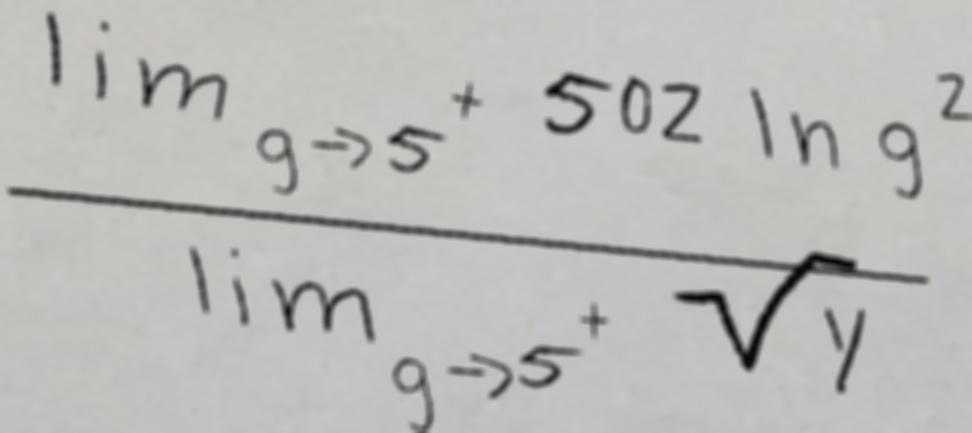 lim g→5⁺ 502 ln g²
lim g→5⁺ √y